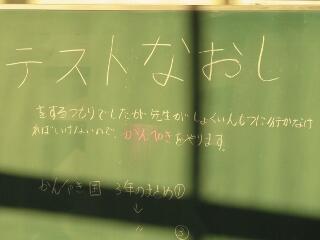 テストなおし
をするつもりでしたが先生がしょくいんしつに行かなけ
ればいけないので、かんじのをやります。
かんじ 3年のまとめ①
↓
〃 ③